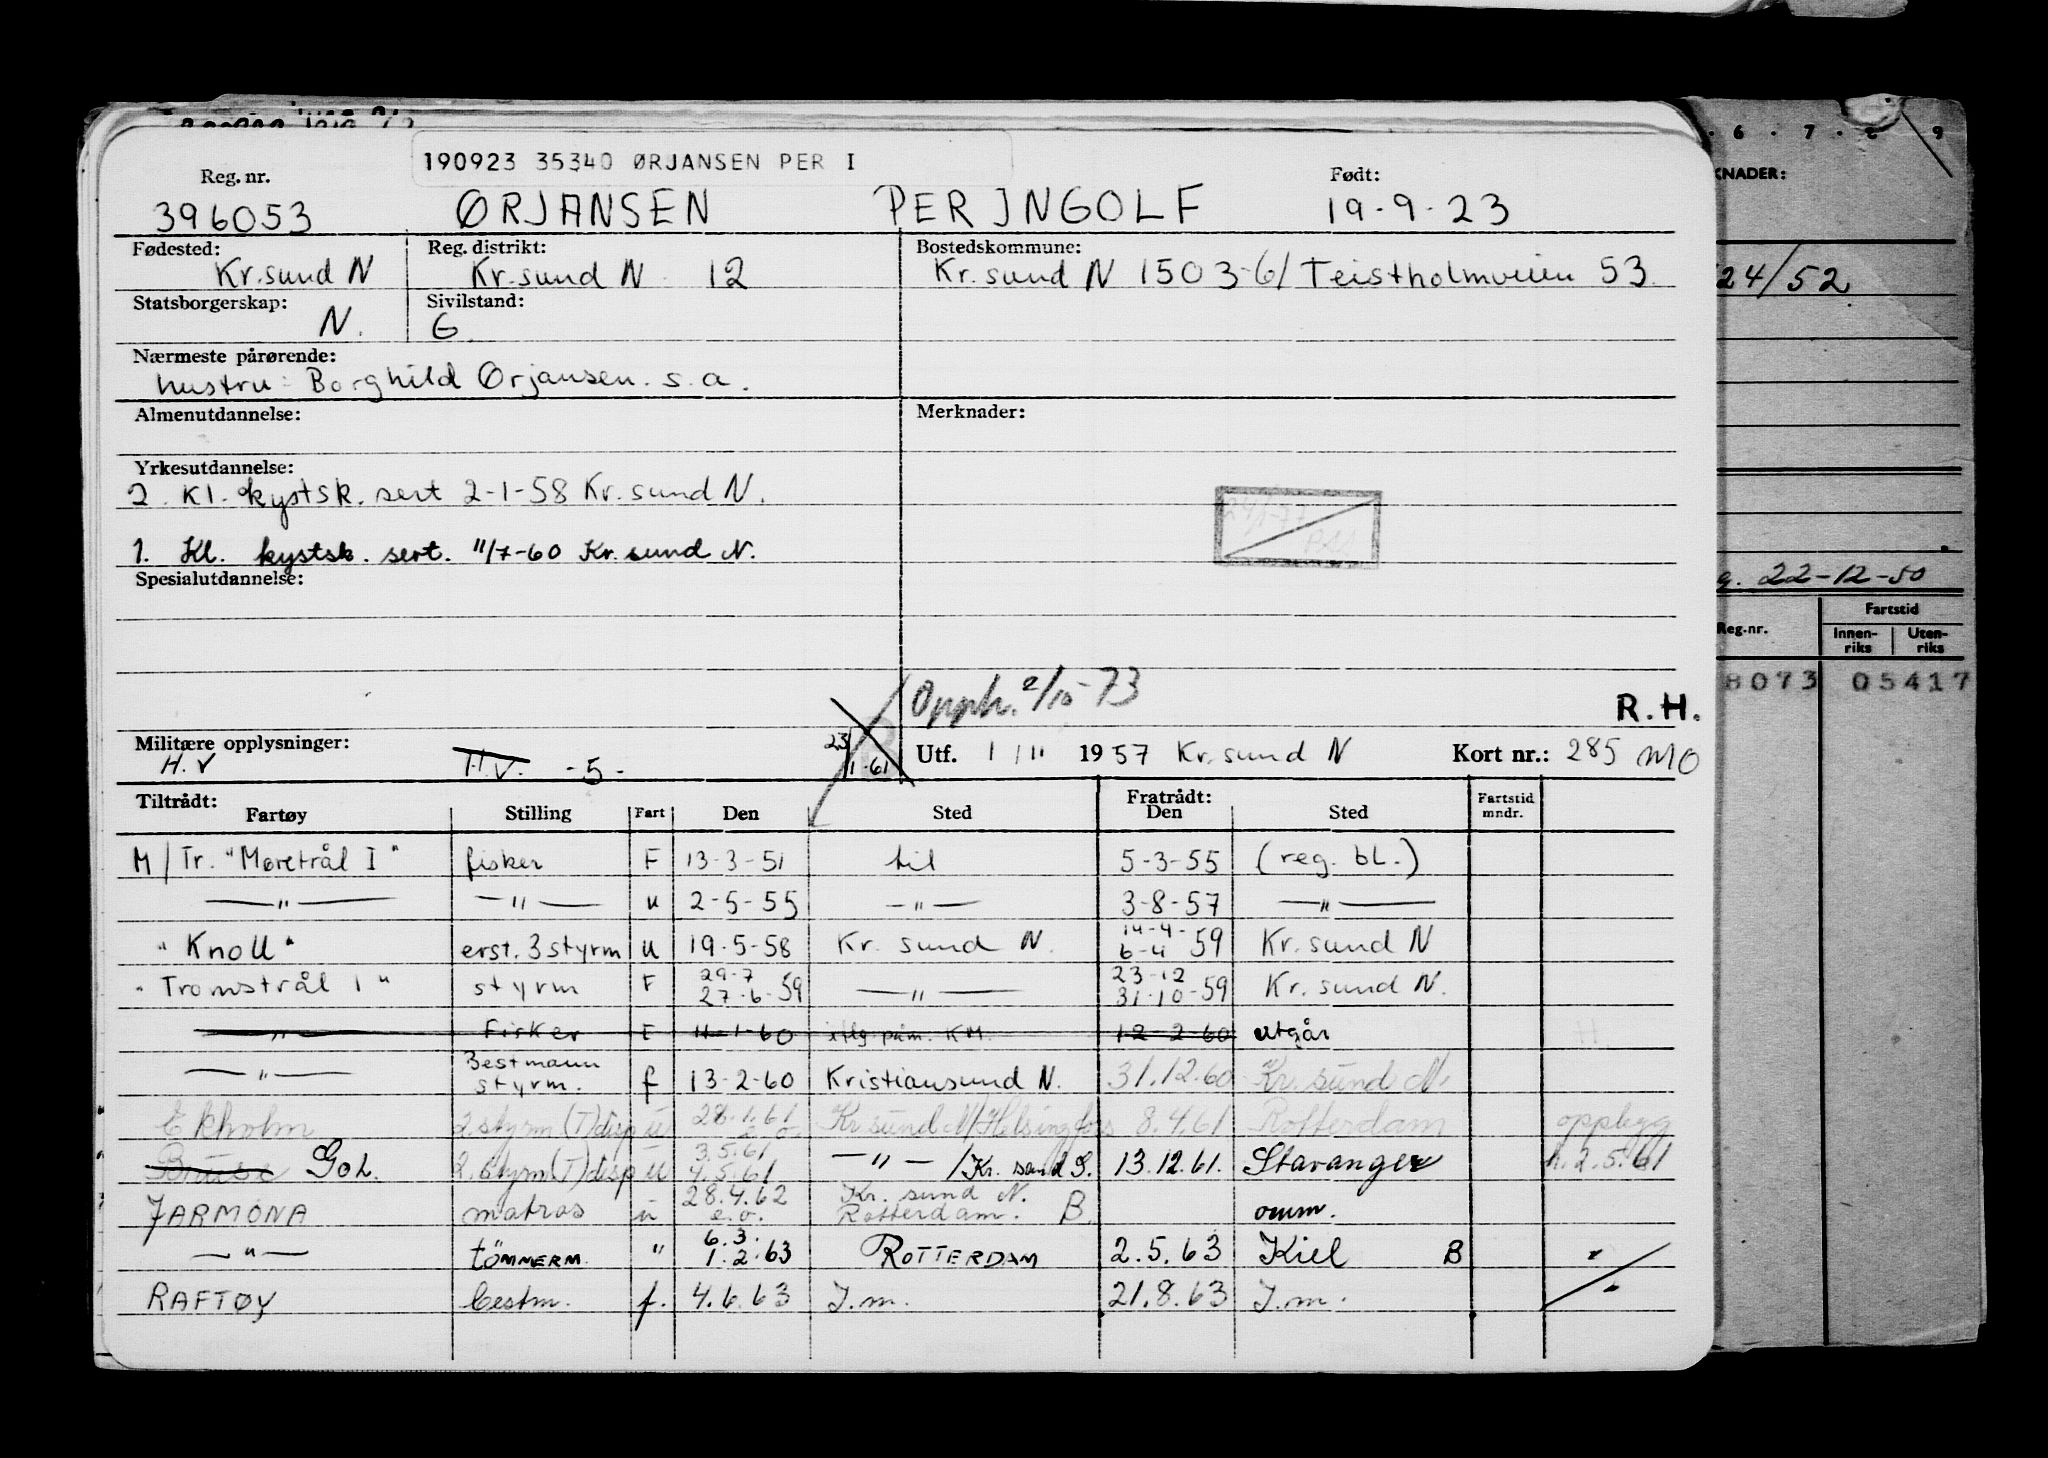 190923 35340 ØRJANSEN PER I
Reg. nr. Født:
396053 ØRJANSEN PER INGOLF 19-9-23
Fødested: Reg. distrikt: Bostedskommune:
Kr.sund N Kr.sund N 12 Kr.sund N 1503-61 Teistholmveien 53
Statsborgerskap: Sivilstand:
N. G.
Nærmeste pårørende:
hustru: Borghild Ørjansen. s.a.
Almenutdannelse: Merknader:
Yrkesutdannelse:
2. Kl. kystsk. sert 2-1-58 Kr.sund N.
1. Kl. kystsk. sert. 11/7-60 Kr.sund N.
Spesialutdannelse:
Opph. 2/10-73
R.H.
Militære opplysninger:
H.V H.V. -5- 23/1-61
Utf. 1/11 1957 Kr.sund N Kort nr.: 285 MO
Tiltrådt: Fratrådt:
Fartøy Stilling Fart Den Sted Den Sted Fartstid mndr.
M/Tr. "Møretrål I" fisker F 13-3-51 til 5-3-55 (reg. bl.)
—"— —"— u 2-5-55 —"— 3-8-57 —"—
"Knoll" erst. 3 styrm u 19-5-58 Kr. sund N. 14-4- 6-4-59 Kr.sund N
"Tromstrål 1" styrm F 29-7 27-6-59 —"— 23-12 31-10-59 Kr.sund N.
—"— Fisker F 11-1-60 KM. 12-2-60 utgår
—"— Bestmann styrm. f 13-2-60 Kristiansund N. 31.12.60 Kr.sund N
Ekholm 2. styrm (T) disp u 28.1.61 e.o. Kr sund N/Helsingfors 8.4.61 Rotterdam oppbygg
Bruse Gol. 2. styrm (T) disp u 3.5.61 4.5.61 —"—/Kr. sand S. 13.12.61. Stavanger h. 2.5.61
JARMONA matros u 28.4.62 e.o. Kr. sund N. Rotterdam. B. omm.
—"— tömmerm. " 6.3. 1.2.63 ROTTERDAM 2.5.63 Kiel B "
RAFTØY bestm. f. 4.6.63 J.m. 21.8.63 J.m. "
6 . 7 . 8 . 9
KNADER:
24/52
22-12-50
Reg.nr. Fartstid
Innen-riks Uten-riks
8073 05417